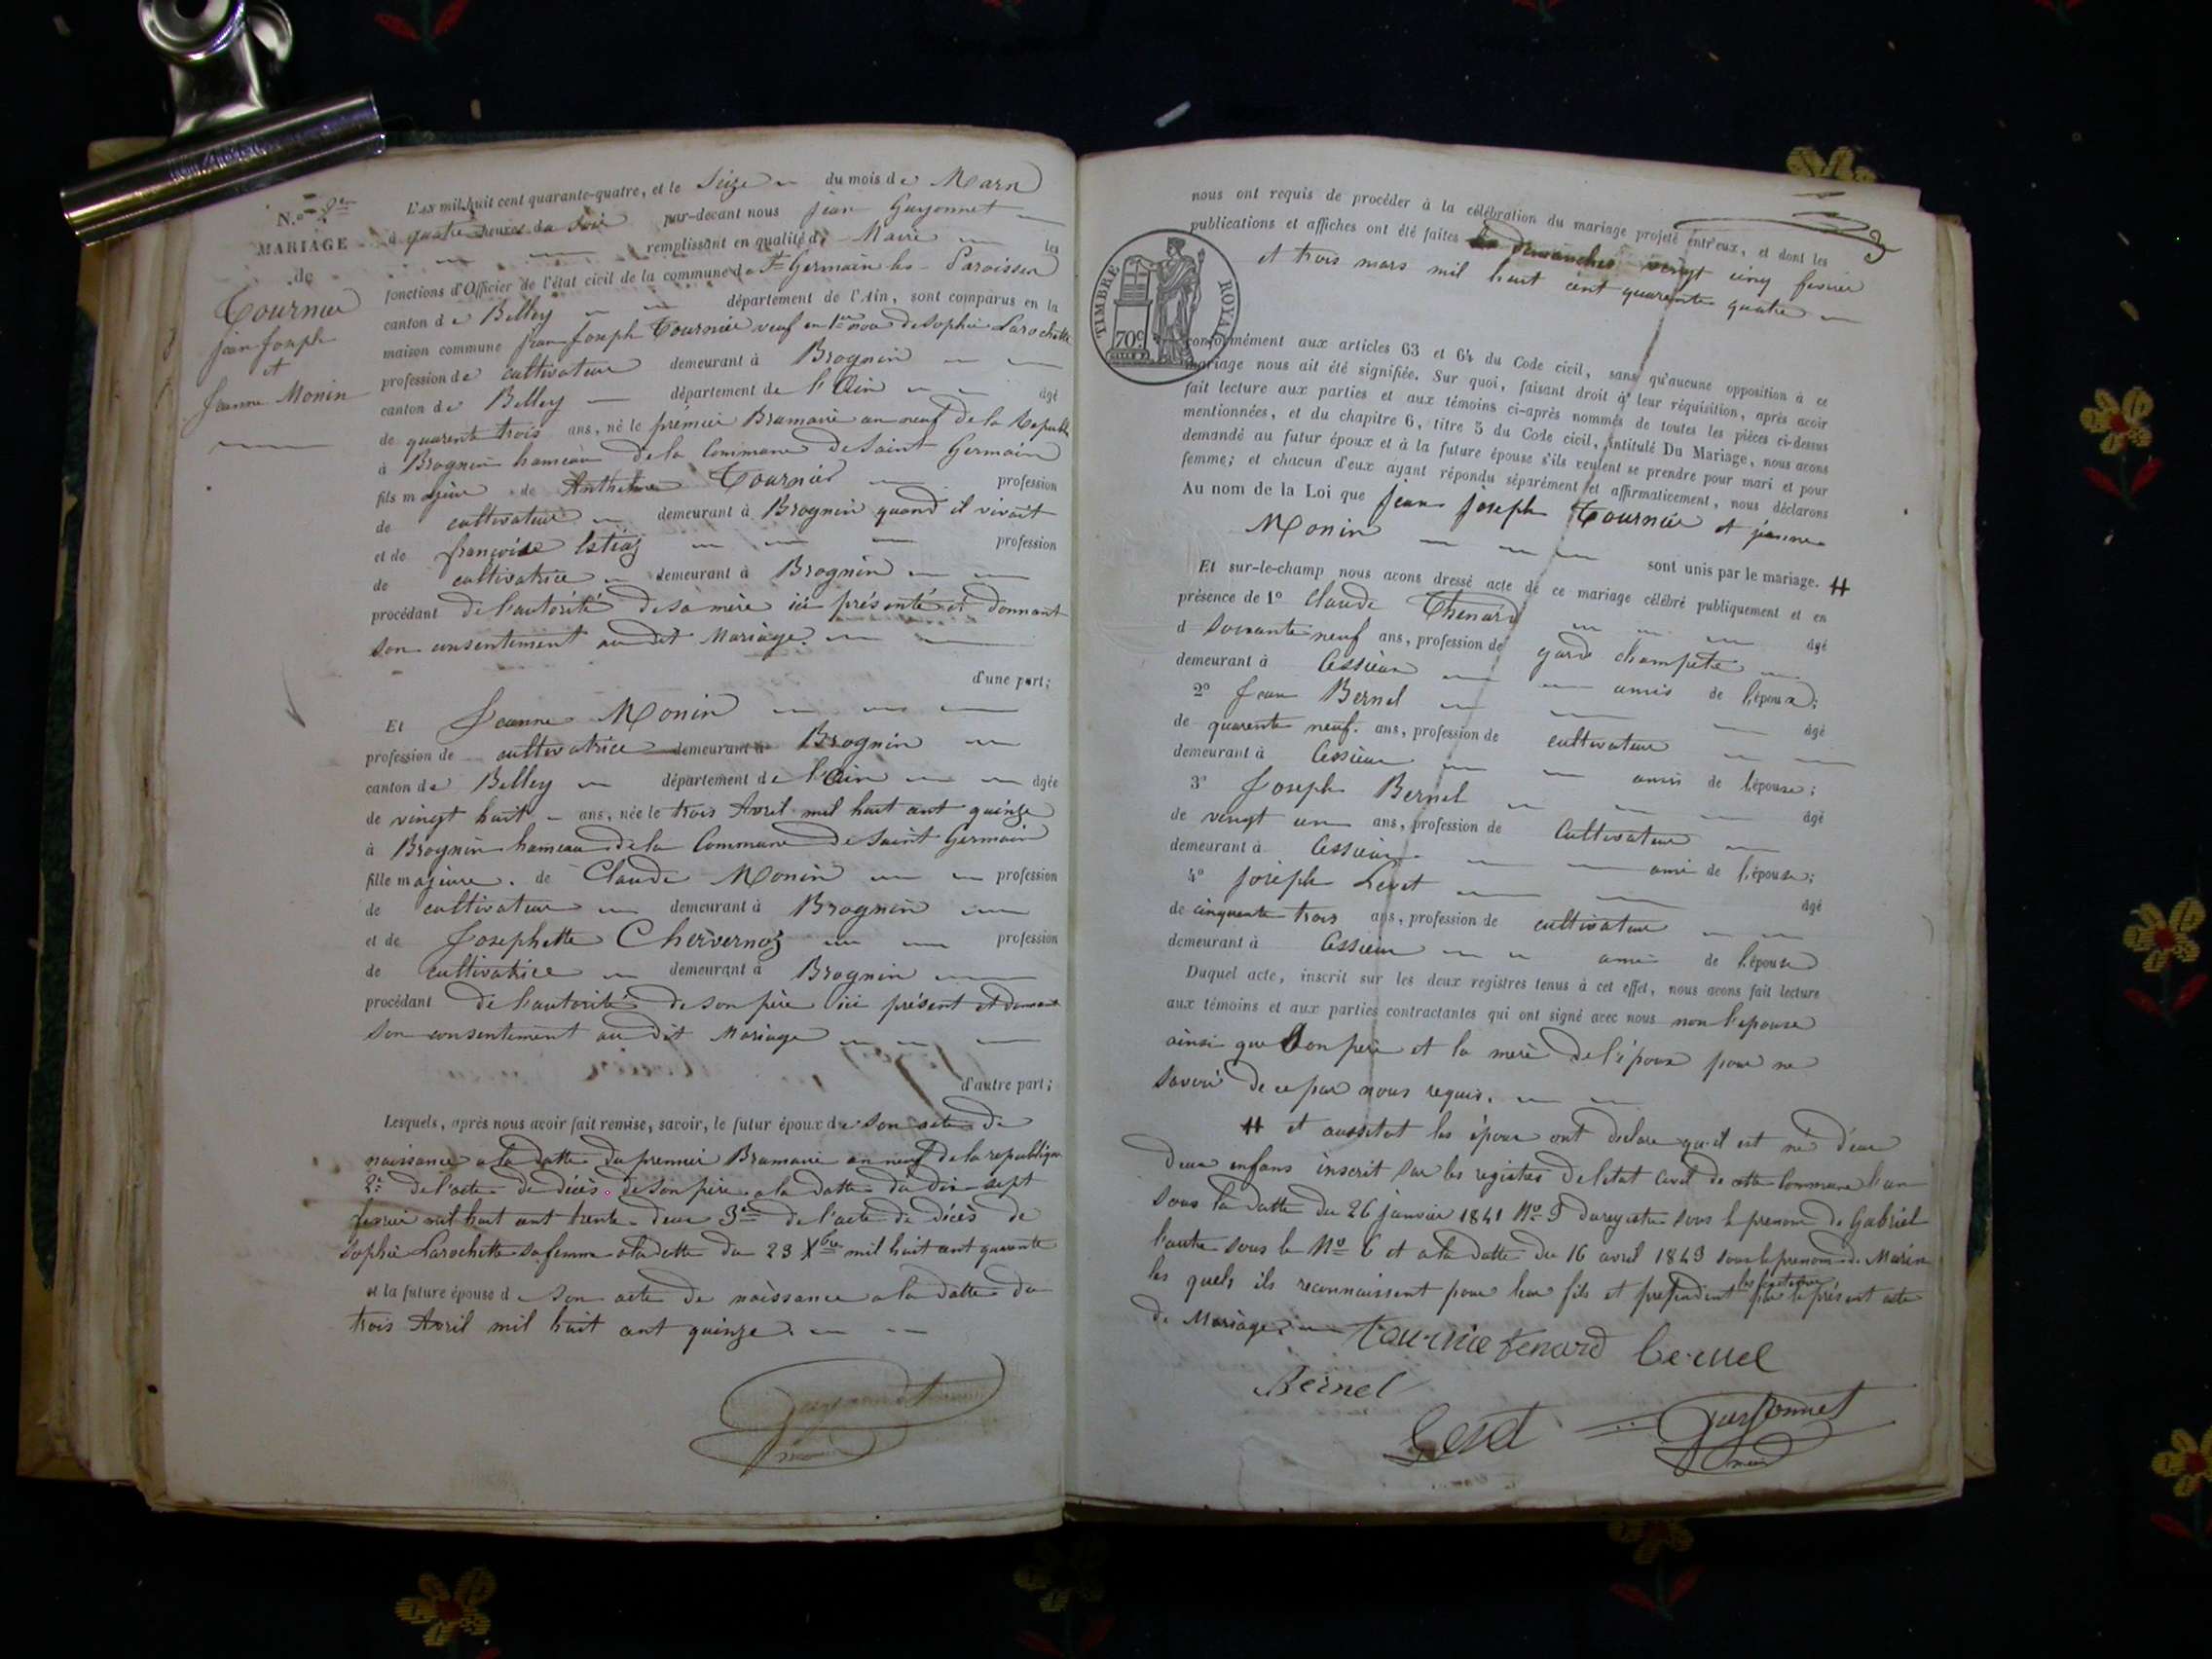 N.º 9
MARIAGE
de
Tournier
jean joseph
et
Jeanne Monin
L'AN mil huit cent quarante-quatre, et le Seize du mois de Mars
à quatre heures du Soir par-devant nous jean Guyonnet
remplissant en qualité de Maire les
fonctions d'Officier de l'état civil de la commune de St Germain les Paroisses
canton de Belley département de l'Ain, sont comparus en la
maison commune jean Joseph Tournier veuf en 1er de Sophie Larochette
profession de cultivateur demeurant à Brognin
canton de Belley département de l'Ain âgé
de quarente trois ans, né le premier Brumaire an neuf de la Republ
à Brognin hameau de la Commune de Saint Germain
fils majeur de Anthelme Tournier profession
de cultivateur demeurant à Brognin quand il vivait
et de françoise profession
de cultivatrice demeurant à Brognin
procédant de l'autorité de sa mère ici présente et donnant
son consentement au dit Mariage.
d'une part;
Et Jeanne Monin
profession de cultivatrice demeurant à Brognin
canton de Belley département de l'Ain âgée
de vingt huit ans, née le trois Avril mil huit cent quinze
à Brognin hameau de la Commune de Saint Germain
fille majeure de Claude Monin profession
de cultivateur demeurant à Brognin
et de Josephette Chervernoz profession
de cultivatrice demeurant à Brognin
procédant de l'autorité de son père ici présent et donnant
son consentement au dit Mariage
d'autre part;
Lesquels, après nous avoir fait remise, savoir, le futur époux de son acte de
naissance a la datte du premier Brumaire an neuf de la republique
2º de l'acte de décès de son père a la datte du dix sept
fevrier mil huit cent trente deux 3e de l'acte de décès de
Sophie Larochette sa femme a la datte du 23 Xbre mil huit cent quarente
et la future épouse de son acte de naissance a la datte du
trois Avril mil huit cent quinze.
Guyonnet
maire
nous ont requis de procéder à la célébration du mariage projeté entr'eux, et dont les
publications et affiches ont été faites les dimanches vingt cinq fevrier
et trois mars mil huit cent quarente quatre
TIMBRE ROYAL
70c
conformément aux articles 63 et 64 du Code civil, sans qu'aucune opposition à ce
mariage nous ait été signifiée. Sur quoi, faisant droit à leur réquisition, après avoir
fait lecture aux parties et aux témoins ci-après nommés de toutes les pièces ci-dessus
mentionnées, et du chapitre 6, titre 5 du Code civil, intitulé Du Mariage, nous avons
demandé au futur époux et à la future épouse s'ils veulent se prendre pour mari et pour
femme; et chacun d'eux ayant répondu séparément et affirmativement, nous déclarons
Au nom de la Loi que jean joseph Tournier et jeanne
Monin sont unis par le mariage. #
Et sur-le-champ nous avons dressé acte de ce mariage célébré publiquement et en
présence de 1º Claude Thenard âgé
d soixante neuf ans, profession de gard champete
demeurant à Cessieu amis de l'époux;
2º Jean Bernel âgé
de quarente neuf ans, profession de cultivateur
demeurant à Cessieu amis de l'épouse;
3º Joseph Bernel âgé
de vingt un ans, profession de Cultivateur
demeurant à Cessieu ami de l'épouse;
4º joseph Levet âgé
de cinquante trois ans, profession de cultivateur
demeurant à Cessieu ami de l'épouse
Duquel acte, inscrit sur les deux registres tenus à cet effet, nous avons fait lecture
aux témoins et aux parties contractantes qui ont signé avec nous non l'epouse
ainsi que son père et la mere de l'époux pour ne
savoir de ce par nous requis.
# et aussitot les époux ont declare qu'il est né d'eux
deux enfans inscrit sur les registres de l'etat civil de cette commune l'un
sous la datte du 26 janvier 1841 Nº 5 du registre sous le prenom de Gabriel
l'autre sous le Nº 6 et a la datte du 16 avril 1843 sous le prenom de Marin
les quels ils reconnaissent pour leur fils et par le présent acte
de Mariage.
tournie tenard bernel
Bernel
Levet Guyonnet
maire